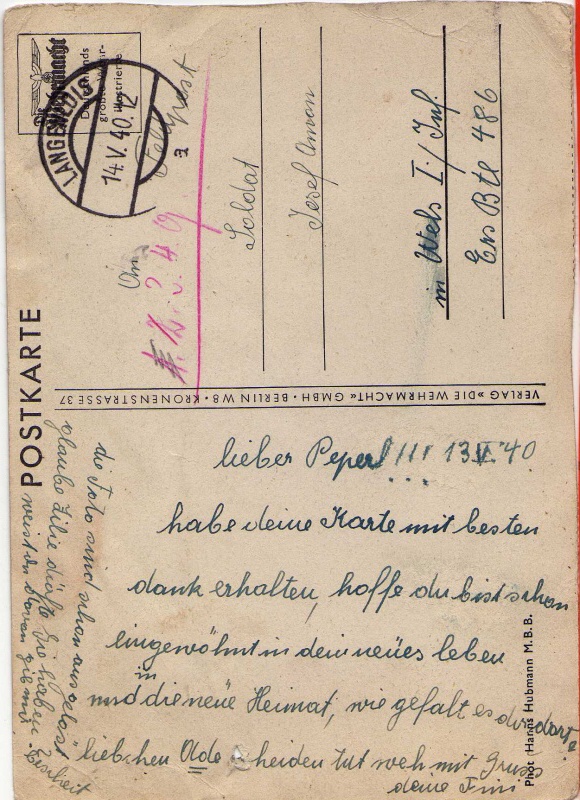 Die Wehrmacht
Deutschlands
größte Wehr-
illustrierte
14.V.40.12
Feldpost
a
An
Soldat
Josef Aman
in Wels I./Inf.
Ers Btl 486
POSTKARTE
VERLAG »DIE WEHRMACHT« GMBH • BERLIN W8 • KRONENSTRASSE 37
lieber Peperl!!! 13.V.40
habe deine Karte mit besten
dank erhalten, hoffe du bist schon
eingewöhnt in dein neues leben
und in die neue Heimat, wie gefalt es dir dort?
liebchen Ade scheiden tut weh mit Gruss
deine
die Foto sind schon ausgelöst
glaube die haben
weist du
Phot (Hanns Hubmann M.B.B.